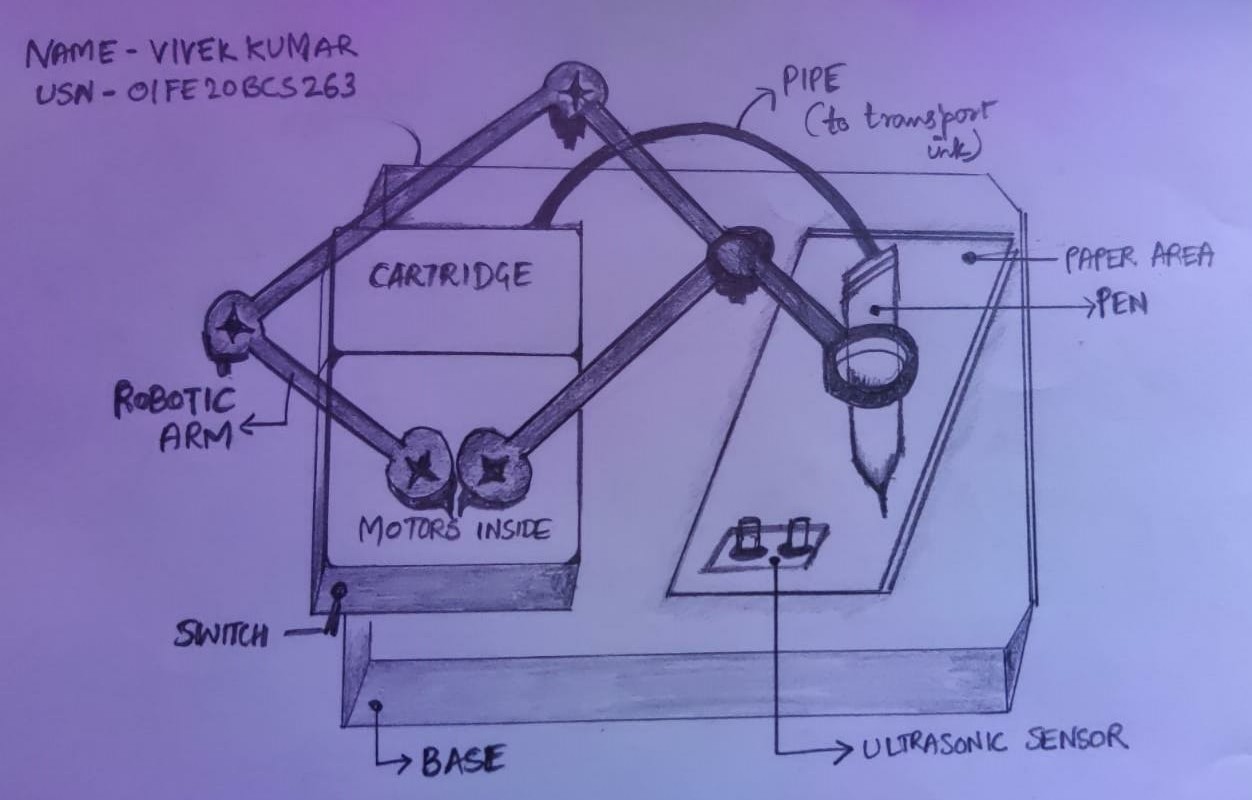 NAME - VIVEK KUMAR
USN - 01FE20BCS263
PIPE
(to transport
ink)
CARTRIDGE
PAPER AREA
PEN
ROBOTIC
ARM
MOTORS INSIDE
SWITCH
BASE
ULTRASONIC SENSOR